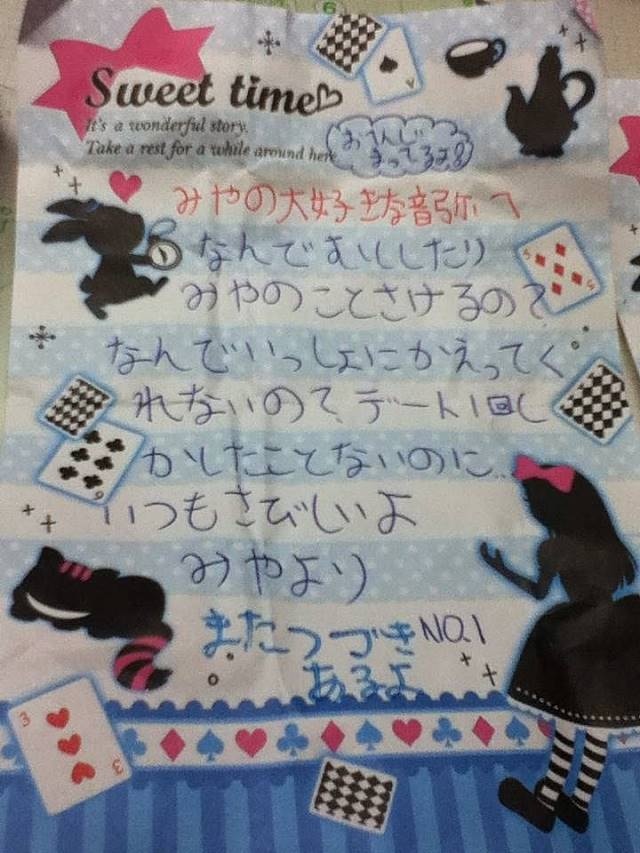 Sweet time
It's a wonderful story.
Take a rest for a while around here
おへんじ
まってるよ8
みやの大好きな音弥へ
なんでむししたり
みやのことさけるの?
なんでいっしょにかえってく
れないの?デート1回し
かしたことないのに...
いつもさびしいよ
みやより
またつづき NO.1
あるよ